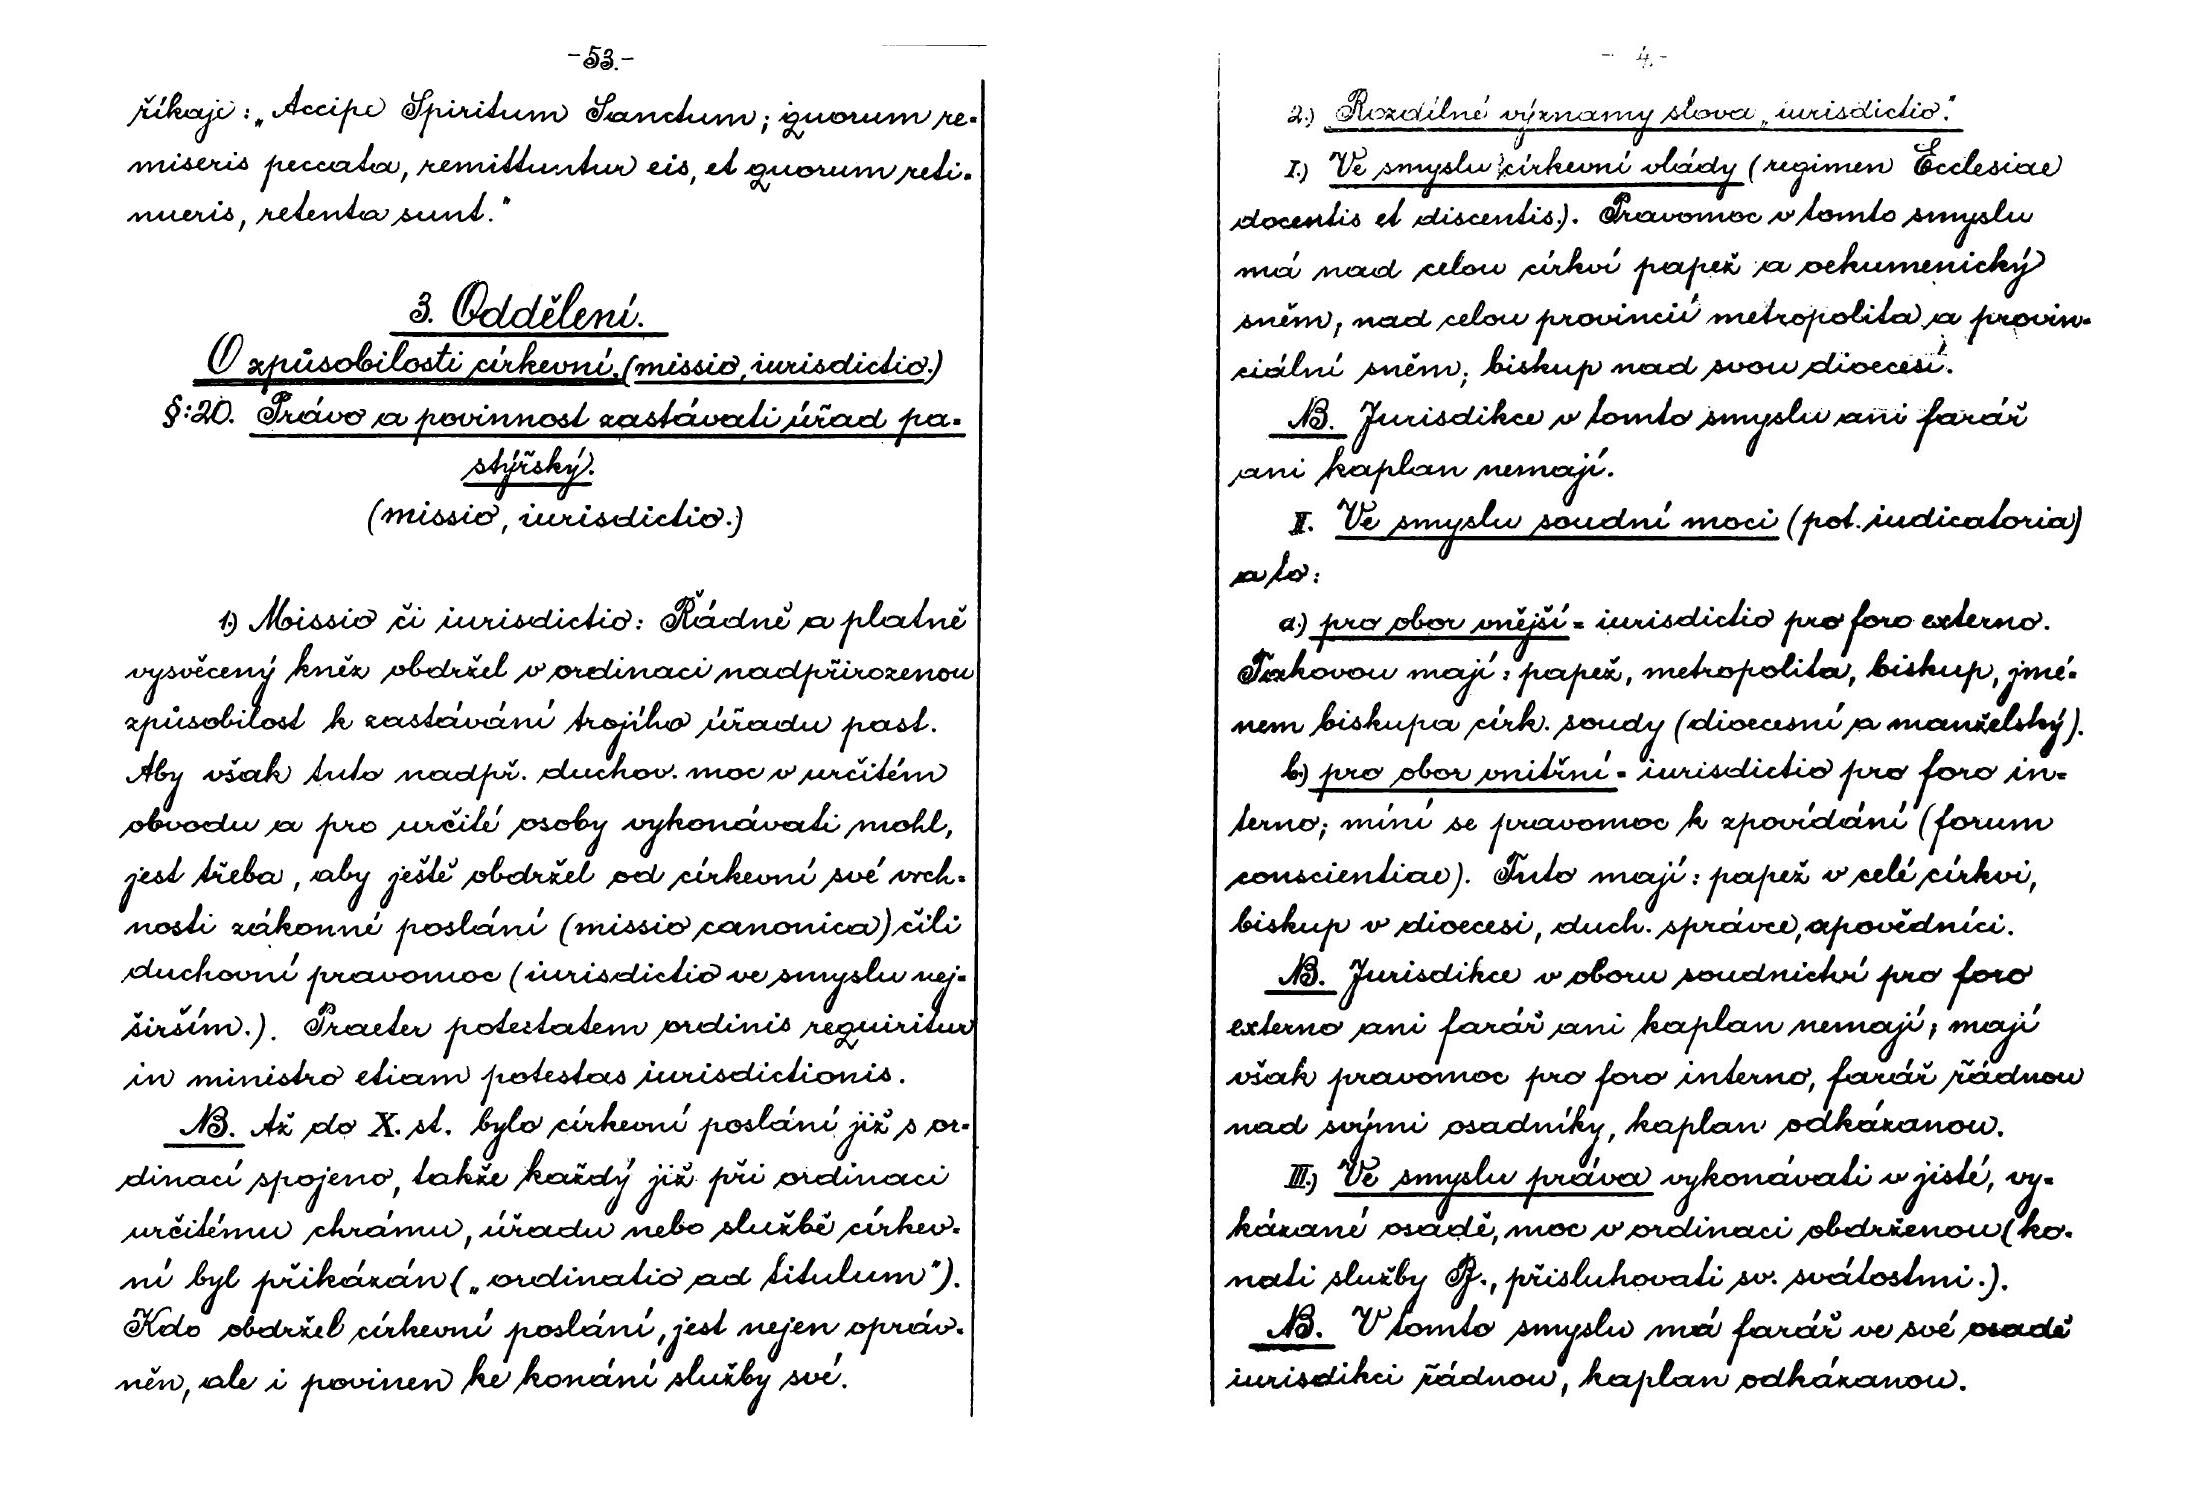 -53.-
říkaje: „Accipe Spiritum Sanctum; quorum re-
miseris peccata, remittuntur eis, et quorum reti-
nueris, retenta sunt."
3. Oddělení.
O způsobilosti církevní. (missio, iurisdictio.)
§:20. Právo a povinnost zastávati úřad pa-
stýřský.
(missio, iurisdictio.)
1.) Missio či iurisdictio: Řádně a platně
vysvěcený kněz obdržel v ordinaci nadpřirozenou
způsobilost k zastávání trojího úřadu past.
Aby však tuto nadpř. duchov. moc v určitém
obvodu a pro určité osoby vykonávati mohl,
jest třeba, aby ještě obdržel od církevní své vrch-
nosti zákonné poslání (missio canonica) čili
duchovní pravomoc (iurisdictio ve smyslu nej-
širším.). Praeter potestatem ordinis requiritur
in ministro etiam potestas iurisdictionis.
NB. Až do X. st. bylo církevní poslání již s or-
dinací spojeno, takže každý již při ordinaci
určitému chrámu, úřadu nebo službě církev-
ní byl přikázán („ordinatio ad titulum").
Kdo obdržel církevní poslání, jest nejen opráv-
něn, ale i povinen ke konání služby své.
- 4.-
2.) Rozdílné významy slova „iurisdictio."
I.) Ve smyslu církevní vlády (regimen Ecclesiae
docentis et discentis.). Pravomoc v tomto smyslu
má nad celou církví papež a oekumenický
sněm, nad celou provincií metropolita a provin-
ciální sněm, biskup nad svou dioecesí.
NB. Jurisdikce v tomto smyslu ani farář
ani kaplan nemají.
II. Ve smyslu soudní moci (pot. iudicatoria)
a to:
a.) pro obor vnější = iurisdictio pro foro externo.
Takovou mají: papež, metropolita, biskup, jmé-
nem biskupa círk. soudy (dioecesní a manželský).
b.) pro obor vnitřní = iurisdictio pro foro in-
terno; míní se pravomoc k zpovídání (forum
conscientiae). Tuto mají: papež v celé církvi,
biskup v dioecesi, duch. správce, zpovědníci.
NB. Jurisdikce v oboru soudnictví pro foro
externo ani farář ani kaplan nemají; mají
však pravomoc pro foro interno, farář řádnou
nad svými osadníky, kaplan odkázanou.
III.) Ve smyslu práva vykonávati v jisté, vy-
kázané osadě, moc v ordinaci obdrženou (ko-
nati služby B., přisluhovati sv. svátostmi.).
NB. V tomto smyslu má farář ve své osadě
iurisdikci řádnou, kaplan odkázanou.